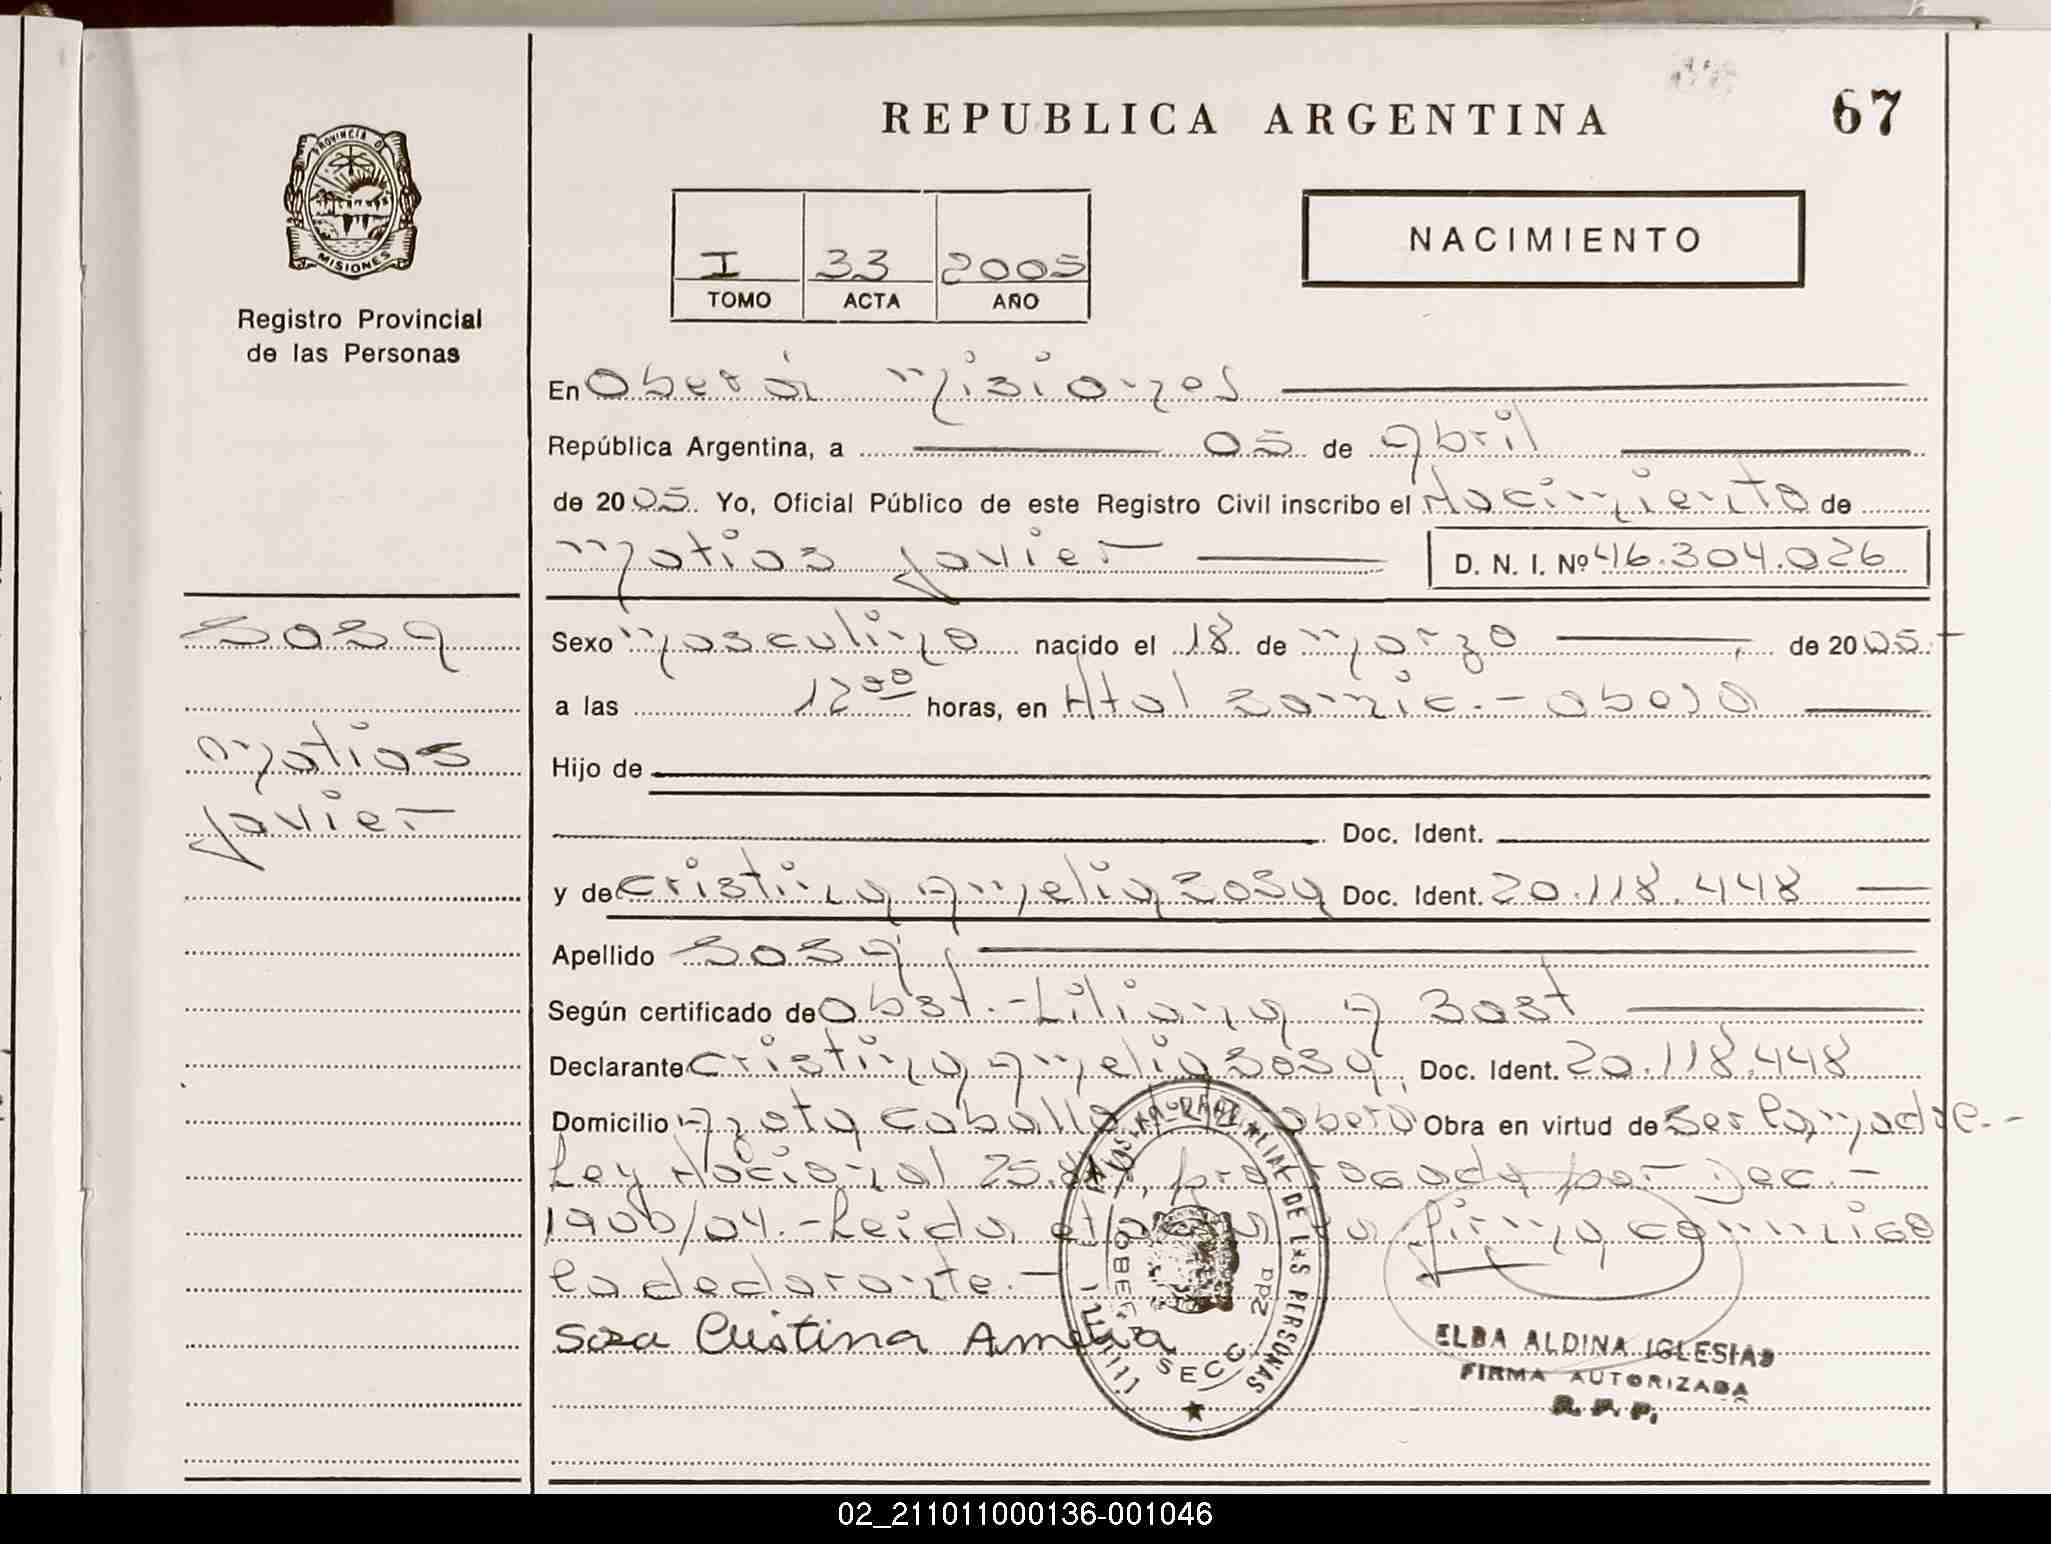 REPUBLICA ARGENTINA
67
PROVINCIA DE
MISIONES
Registro Provincial
de las Personas
I 33 2005
TOMO ACTA AÑO
NACIMIENTO
En Oberá Misiones
República Argentina, a 05 de Abril
de 2005. Yo, Oficial Público de este Registro Civil inscribo el Nacimiento de
Matias Javier D. N. I. Nº 46.304.026
Sosa
Matias
Javier
Sexo Masculino nacido el 18 de Marzo de 2005.
a las 12 00 horas, en Htal Samic.- Oberá
Hijo de
Doc. Ident.
y de Cristina Amelia Sosa Doc. Ident. 20.118.448
Apellido Sosa
Según certificado de Obst.- Liliana A Bast
Declarante Cristina Amelia Sosa, Doc. Ident. 20.118.448
Domicilio Azota Caballo Oberá Obra en virtud de Ser la madre.-
Ley Nacional 25. por Dec.-
1900/04.- Leida el acta la firma conmigo
la declarante.-
Sosa Cristina Amelia
DE LAS PERSONAS
OBERA SECC. 2da
ELBA ALDINA IGLESIAS
FIRMA AUTORIZADA
R. P. P.
02_211011000136-001046